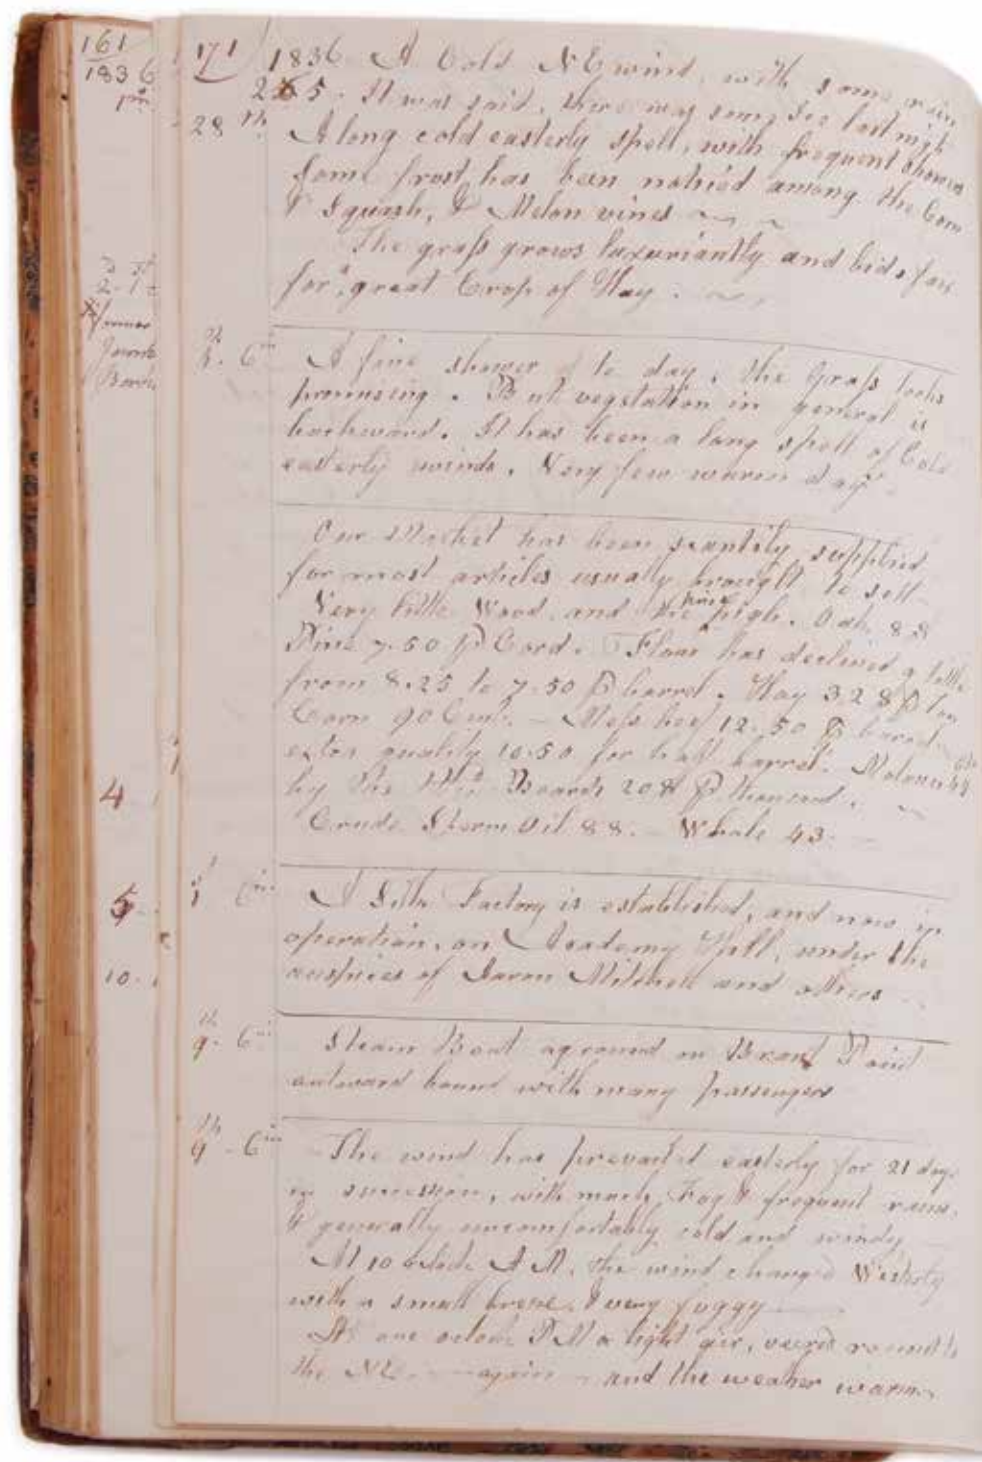 161
1836
171 1836 A Cold NE wind, with some rain
2 5. It was said, there was some Ice last night
28th A long cold easterly spell, with frequent showers
Some frost has been noticed among the Corn
& Squash, & Melon vines
The grass grows luxuriantly and bids fair
for a great Crop of Hay.
6m A fine shower to day, the Grass looks
promising. But vegetation in general is
backward. It has been a long spell of Cold
easterly winds. Very few warm days
Our Market has been scantily supplied
for most articles usually brought to sell
Very little Wood, and the price high. Oak 8
Pine 7.50 ⅌ Cord. Flour has declined a little
from 8.25 to 7.50 ⅌ barrel. Hay 32$ ⅌ ton
Corn 90 Cents. Mess beef 12.50 ⅌ barrel
extra quality 10.50 for half barrel. Molasses
by the Boards 20$ ⅌ thousand.
Crude Sperm Oil 88. Whale 43.
4
1st 6m A Silk Factory is established, and now in
5
operation, on Academy Hill, under the
10. auspices of Aaron Mitchell and others
9th 6m Steam Boat aground on Brant Point
outward bound with many passengers
9th 6m The wind has prevailed easterly for 21 days
in succession, with much Fog & frequent rains,
& generally uncomfortably cold and windy
At 10 oclock A M. the wind changed Westerly
with a small breeze, & very foggy
At one oclock P M a light air, veered round to
the NE again and the weather warm